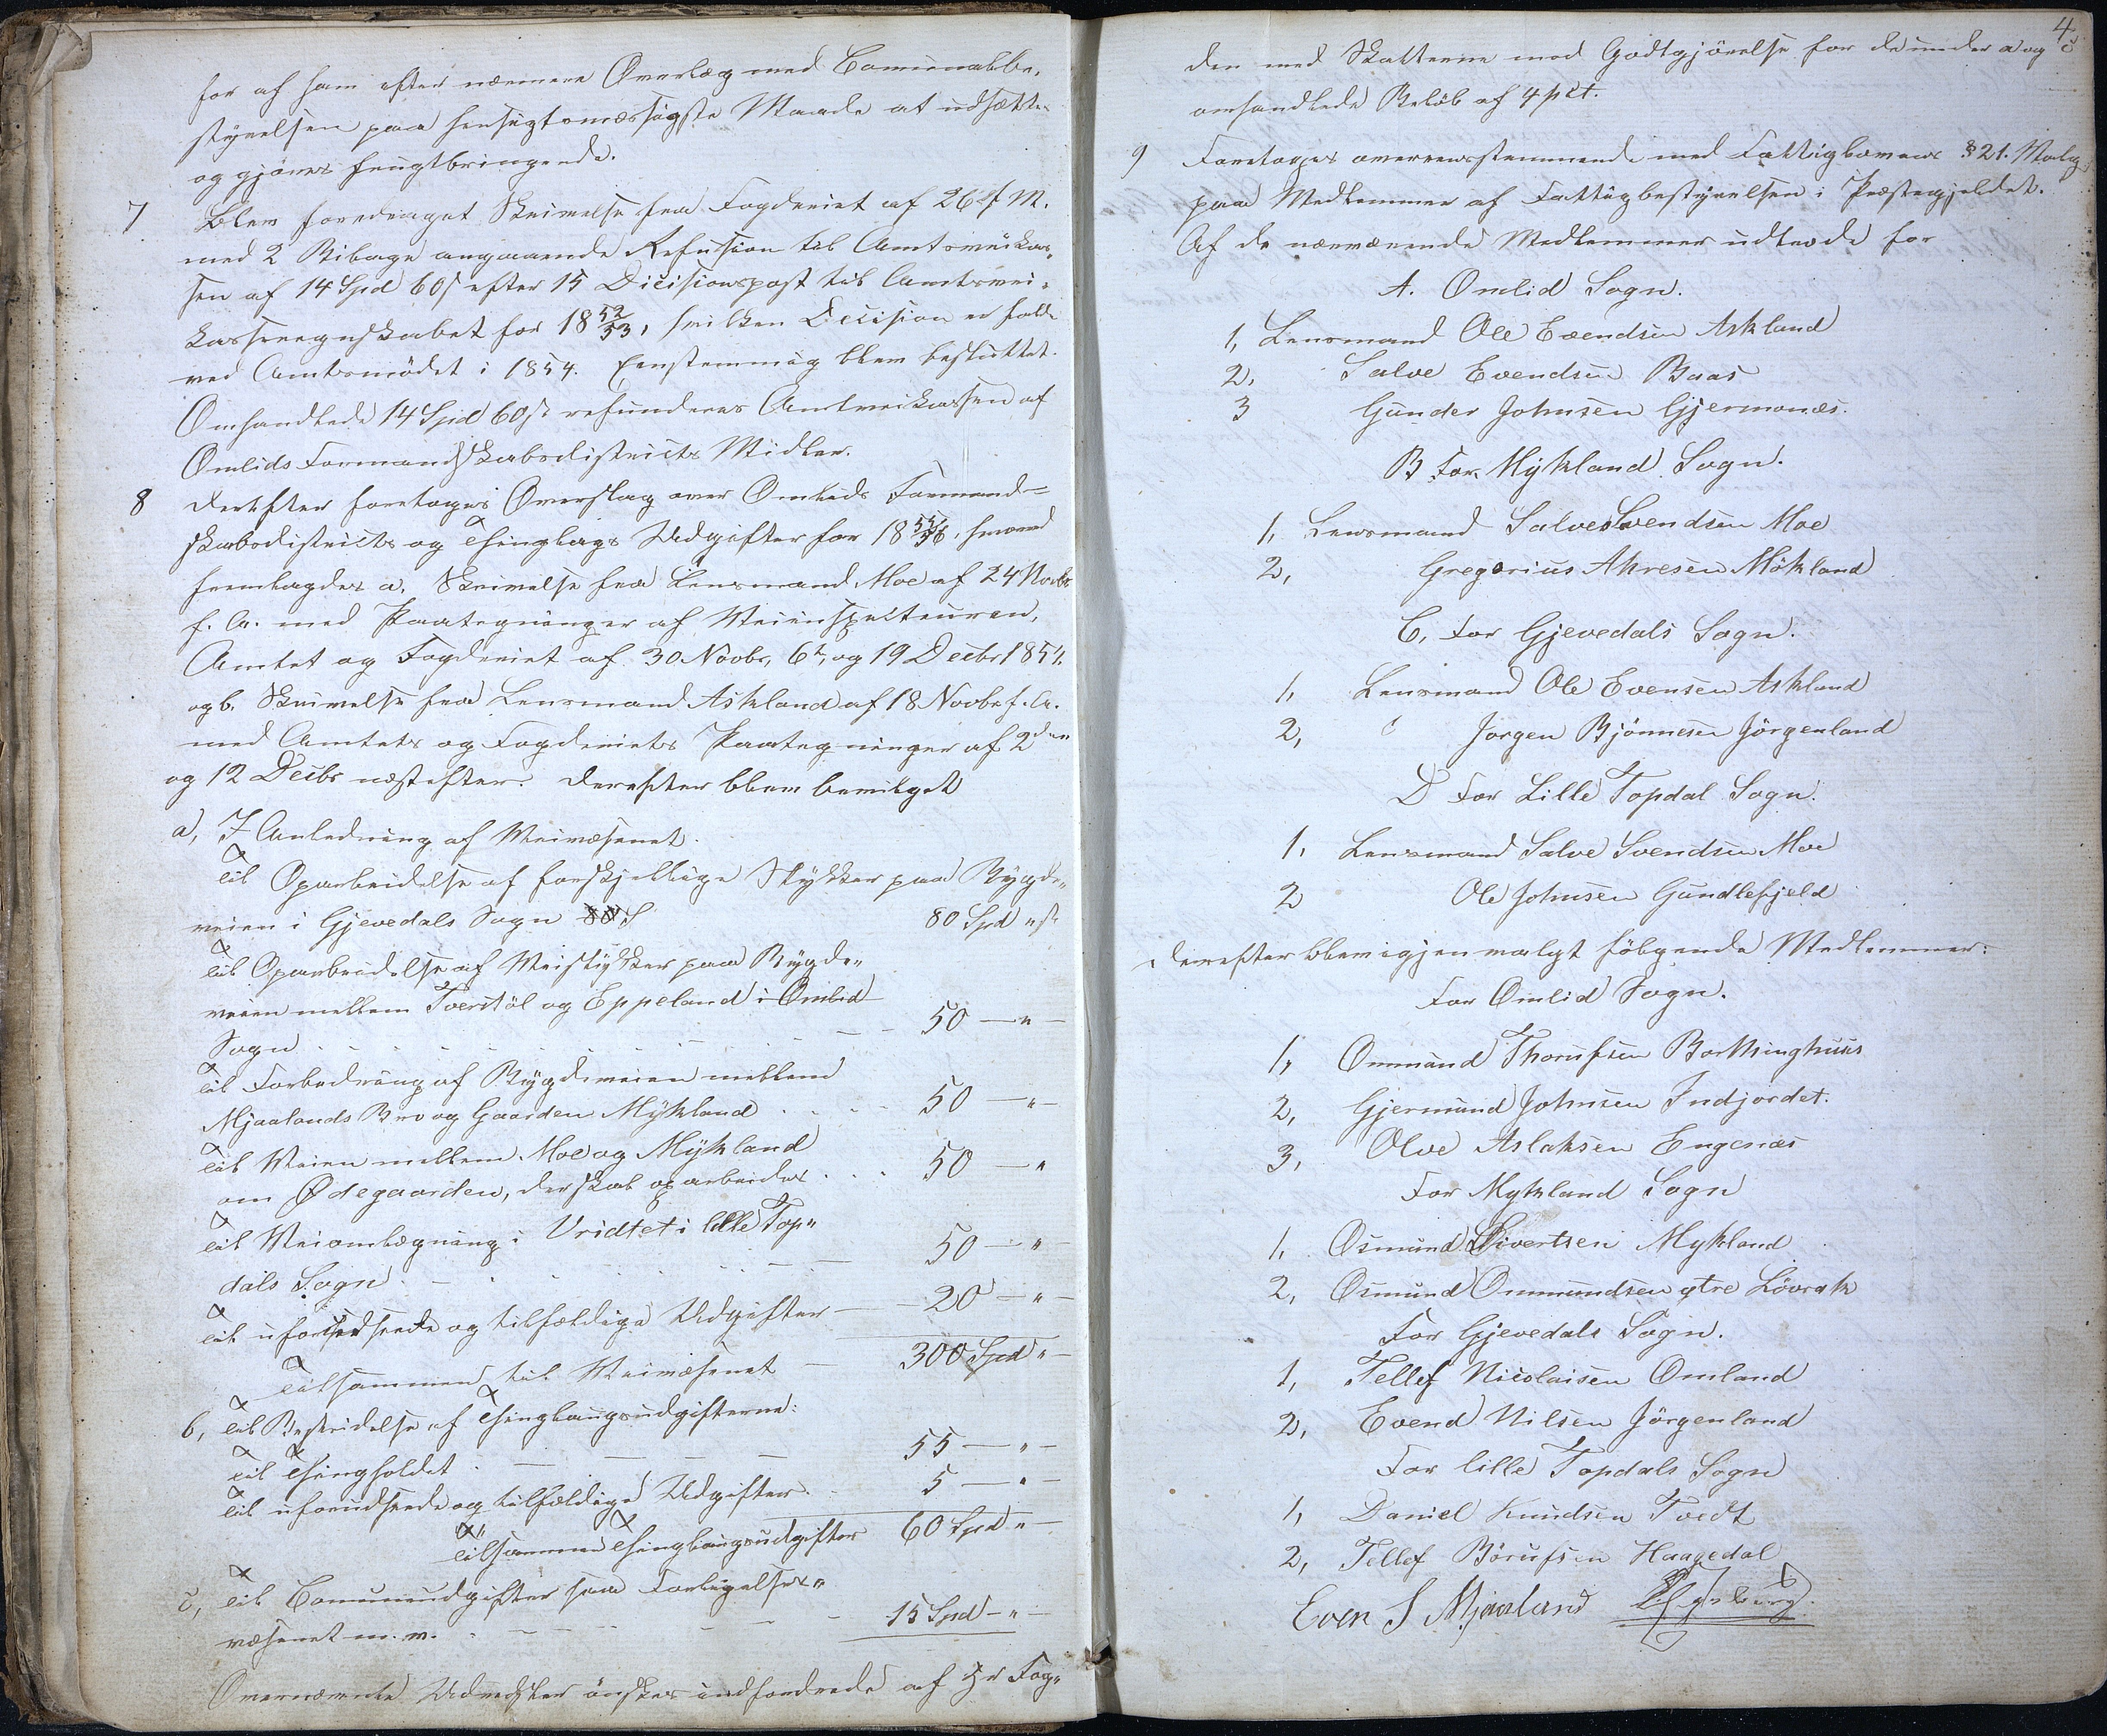 for af ham efter nærmere Overlæg med Communalbe-
styrelsen paa hensigtsmæssigste Maade at udsættes
og gjøres frugtbringende.
7 Blev foredraget Skrivelse fra Fogderiet af 26 f. M.
med 2 Bilage angaaende Refusion til Amtsveikas-
sen af 14 Spd 60 s efter 15 Decisionspost til Amtsvei-
kasseregnskabet for 18 52/53, hvilken Decision er faldt
ved Amtsmødet i 1854. Eenstemmig blev besluttet.
Omhandlede 14 Spd 60 s refunderes Amtveikassen af
Omlids Formandskabsdistricts Midler.
8 Derefter foretoges Overslag over Omlids Formand-
skabsdistricts og Thinglags Udgifter for 18 55/56, hvorved
fremlagdes a. Skrivelse fra Lensmand Moe af 24 Novbr
f. A. med Paategninger af Veiinspecteuren,
Amtet og Fogderiet af 30 Novbr, 6te, og 19 Decbr 1854.
og b. Skrivelse fra Lensmand Askland af 18 Novbr f. A.
med Amtets og Fogderiets Paategninger af 2den
og 12 Decbr næstefter. Derefter blev bevilget
a, I Anledning af Veivæsenet.
Til Oparbeidelse af forskjellige Stykker paa Bygde-
veien i Gjevedals Sogn 80 S 80 Spd " s
Til Oparbeidelse af Veistykker paa Bygde-
veien mellem Tverstøl og Eppeland i Omlid
Sogn 50 — " —
Til Forbedring af Bygdeveien mellem
Mjaalands Bro og Gaarden Mykland 50 — " —
Til Veien mellem Moe og Mykland
om Ødegaarden, der skal oparbeides 50 — "
Til Veiomlægning i Vridtet i lille Top-
dals Sogn 50 — " —
Til uforudseede og tilfældige Udgifter 20 — " —
Tilsammen til Veivæsenet 300 Spd " —
b, Til Bestridelse af Thinglaugsudgifterne:
Til Thingholdet 55 — " —
Til uforudseede og tilfældige Udgifter 5 — " —
Tilsammen Thinglaugsudgifter 60 Spd " —
c, Til Communeudgifter saa Forligelses-
væsenet m. v. 15 Spd — " —
Overnævnte Udredsler ønskes indfordrede af Hr Fog-
4
den med Skatterne mod Godtgjørelse for de under a og c
omhandlede Beløb af 4 pct.
9) Foretoges overeensstemmende med Fattiglovens § 21. Valg
paa Medlemmer af Fattigbestyrelsen i Præstegjeldet.
Af de nærværende Medlemmer udtræde for
A. Omlid Sogn.
1, Lensmand Ole Evendsen Askland
2, Salve Evendsen Baas
3 Gunder Johnsen Gjermonæs.
B For Mykland Sogn.
1, Lensmand Salve Svendsen Moe
2, Gregorius Ahresen Mökland
C, For Gjevedals Sogn.
1, Lensmand Ole Evensen Askland
2, Jørgen Bjönnesen Jörgenland
D For Lille Topdal Sogn.
1, Lensmand Salve Svendsen Moe
2 Ole Johnsen Gundlefjeld
Derefter bleve igjen valgt følgende Medlemmer:
For Omlid Sogn.
1, Ommund Thorufsen Borthinghuus
2, Gjermund Johnsen Indjordet.
3, Olve Aslaksen Engenæs
For Mykland Sogn
1, Osmund Sivertsen Mykland
2, Osmund Ommundsen ytre Lövrak
For Gjevedals Sogn.
1, Tellef Nicolaisen Omland
2, Evend Nilsen Jörgenland
For lille Topdals Sogn
1, Daniel Knudsen Tvedt
2, Tellef Börufsen Haagedal
Even S Mjaaland